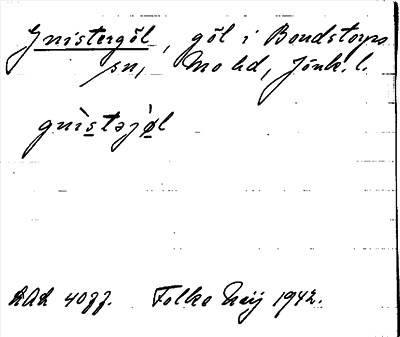 Gnistergöl, göl i Bondstorps
sn, Mo hd, Jönk. l.
gnìstəjø̀l
4077. Folke 1942.